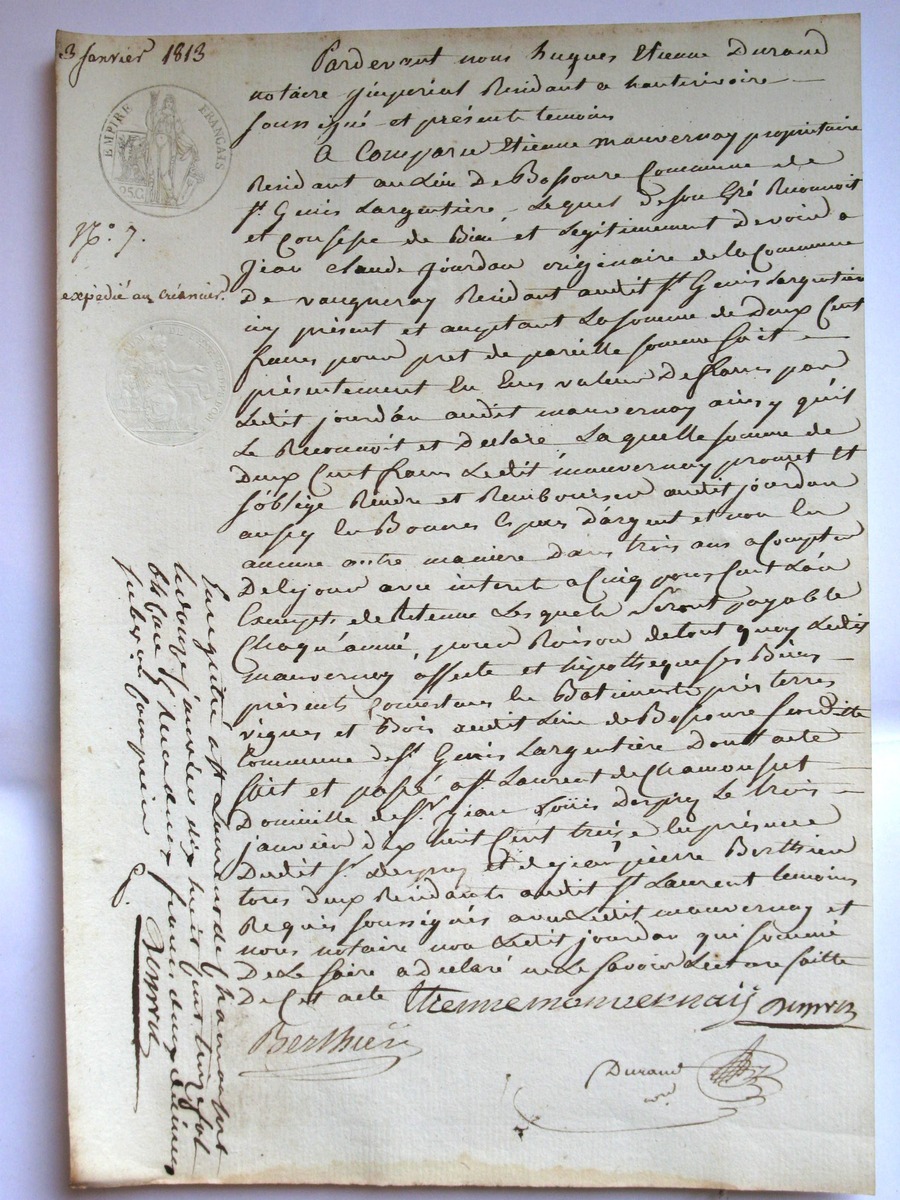 3 Janvier 1813
EMPIRE FRANÇAIS
25 C
N.o 7.
expédié au créancier.
Pardevant nous hugues Etienne Durand
notaire jmperial Residant a hauterivoire
soussigné et présents temoins
A Comparu Etienne mauvernay propriétaire
Residant au Lieu De Bossoure Commune de
st. Genis Largentière, Lequel de son Gré Reconnoit
et Confesse de Bien et Legitimement Devoir a
Jean Claude jourdan originaire de la Commune
De vaugneray Residant audit st. Genis Largentiere
icy présent et acceptant La somme de Deux Cent
francs pour pret de pareille somme fait
présentement En Ecus valeur De francs par
Ledit jourdan audit mauvernay ainsy qu'il
Le Reconnoit et Declare. La quelle somme de
Deux Cent francs Ledit mauvernay promet Et
s'oblige Rendre et Rembourser audit jourdan
aussy En Bonnes Espèces D'argent et non En
aucune autre maniere Dans trois ans a Compter
De Ce jour avec interet a Cinq pour Cent L'an
Exempts de Retenue Lesquels seront payable
Chaqu'année, pour Raison de tout quoy Ledit
mauvernay affecte et hipotheque ses Biens
présents Consistans En Batiments prés terres
vignes et Bois audit Lieu de Bossoure susditte
Commune de st. Genis Largentière Dont acte
fait et passé a st. Laurent de Chamousset
Domicille de sr. jean Louis Desprez Le trois
janvier Dix huit Cent treize En présence
Dudit sr. Desprez et de jean pierre Berthier
tous deux Residants audit st. Laurent temoins
Requis soussignés avec Ledit mauvernay et
nous notaire non Ledit jourdan qui sommé
De Le faire a declaré ne Le savoir Lecture faitte
De Cet acte
Etienne mauvernaÿ
Berthier
Durand
nore
Enregistré a st. Laurent de Chamousset
le douze janvier dix huit Cent treize fol
Reçu deux francs deux decimes